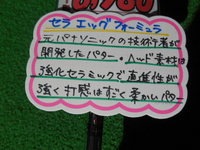 セラ エッグフォーミュラ
元パナソニックの技術者が
開発したパター・ヘッド素材は
強化セラミックで直進性が
強く打感はすごく柔かいパター